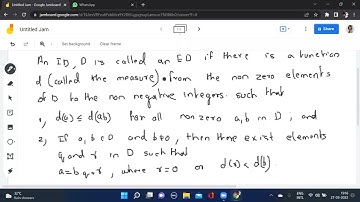 Untitled Jam - Google Jamboard
WhatsApp
Untitled Jam
Set background
Clear frame
An ID, D is called an ED if there is a function
d (called the measure) from the non zero elements
of D to the non negative integers such that
1, d(a) ≤ d(ab) for all non zero a, b in D, and
2, If a, b ∈ D and b≠0, then there exist elements
q and r in D such that
a = bq + r, where r = 0 or d(r) < d(b).
32°C
Rain showers
ENG
INTL
27-05-2022